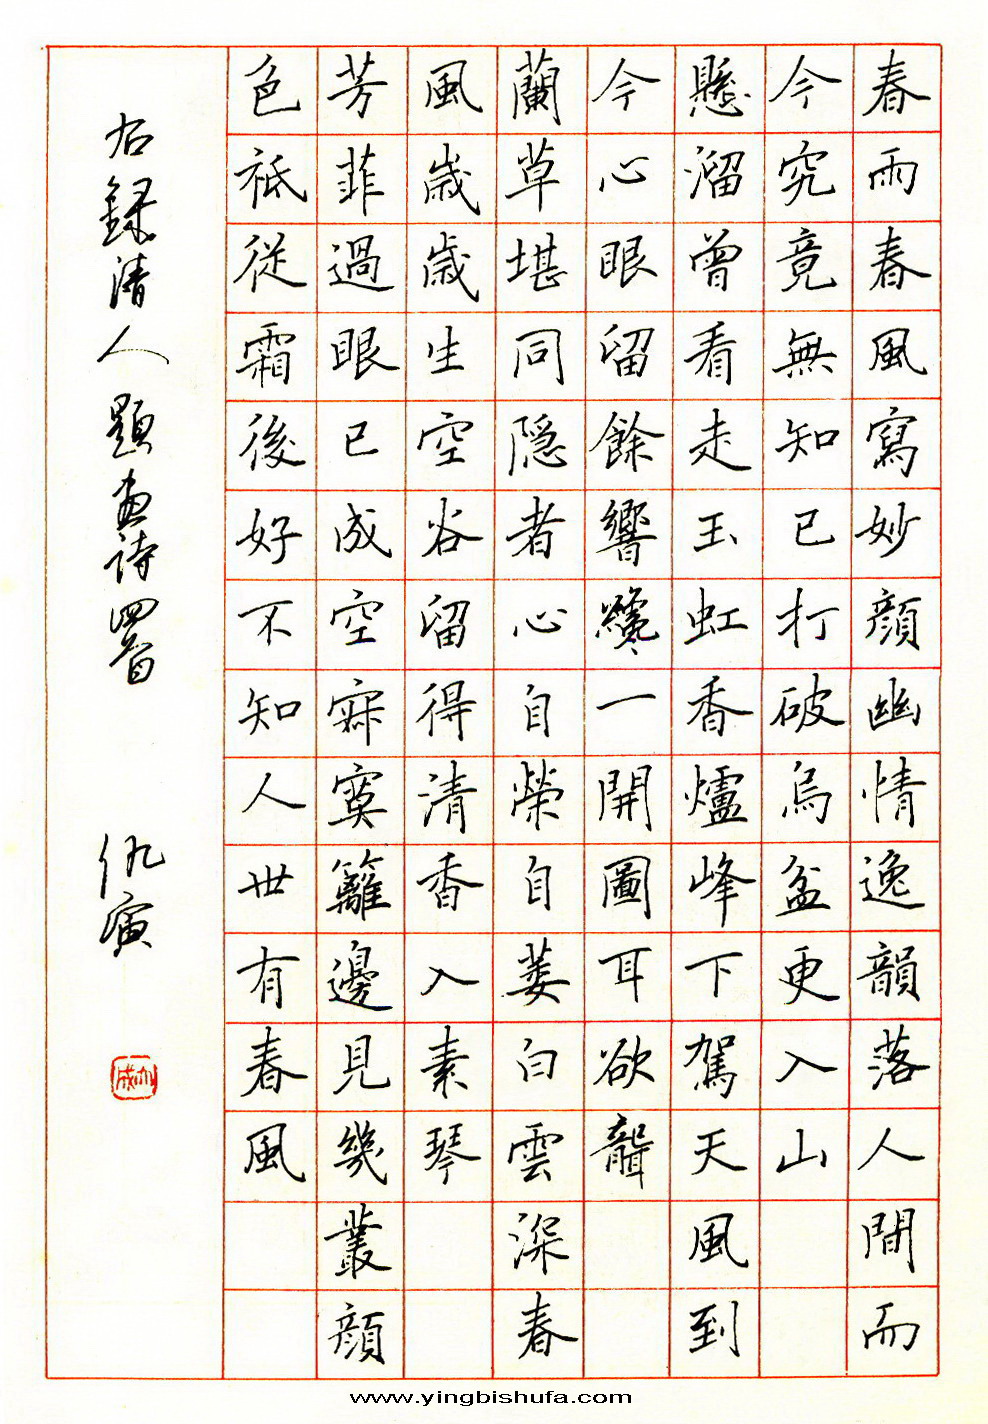 春雨春風寫妙顔幽情逸韻落人間而
今究竟無知己打破烏盆更入山
懸溜曾看走玉虹香爐峰下駕天風到
今心眼留餘響纔一開圖耳欲聾
蘭草堪同隐者心自榮自萎白雲深春
風歲歲生空谷留得清香入素琴
芳菲過眼已成空寂寞籬邊見幾叢顔
色祇從霜後好不知人世有春風
右録清人題畫詩四首 仇寅
www.yingbishufa.com